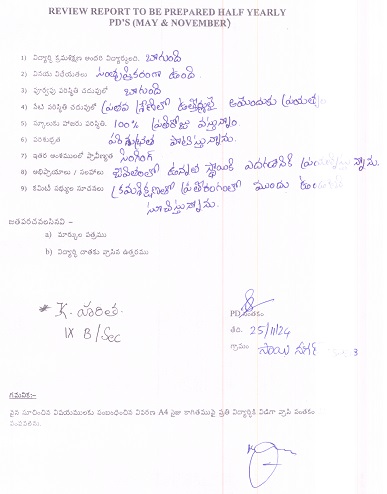 REVIEW REPORT TO BE PREPARED HALF YEARLY
PD'S (MAY & NOVEMBER)
1) విద్యార్థి క్రమశిక్షణ అందరి విద్యార్థులందు. బాగుంది
2) వినయ విధేయతలు సంతృప్తికరంగా ఉంది.
3) పూర్వపు పరిస్థితి చదువులో బాగుంది
4) నేటి పరిస్థితి చదువులో ప్రథమ శ్రేణిలో ఉత్తీర్ణులై
5) స్కూలుకు హాజరు పరిస్థితి. 100% ప్రతిరోజు వస్తున్నాం
6) పరిశుభ్రత పరిశుభ్రత పాటిస్తున్నాను.
7) ఇతర అంశములలో ప్రావీణ్యత సింగింగ్
8) అభిప్రాయాలు / సలహాలు జీవితంలో ఉన్నత స్థాయికి ఎదగడానికి
9) కమిటీ సభ్యుల సూచనలు క్రమశిక్షణతో ప్రతిరంగంలో ముందు
సూచిస్తున్నాను.
జతపరచవలసినవి -
a) మార్కుల పత్రము
b) విద్యార్థి దాతకు వ్రాసిన ఉత్తరము
* K. హారిత.
IX B/Sec
PD సంతకం
తేది. 25/11/24
గ్రామం సాయి నగర్
గమనిక:-
పైన సూచించిన విషయములకు సంబంధించిన వివరణ A4 సైజు కాగితముపై ప్రతి విద్యార్థికి విడిగా వ్రాసి సంతకం
పంపవలెను.